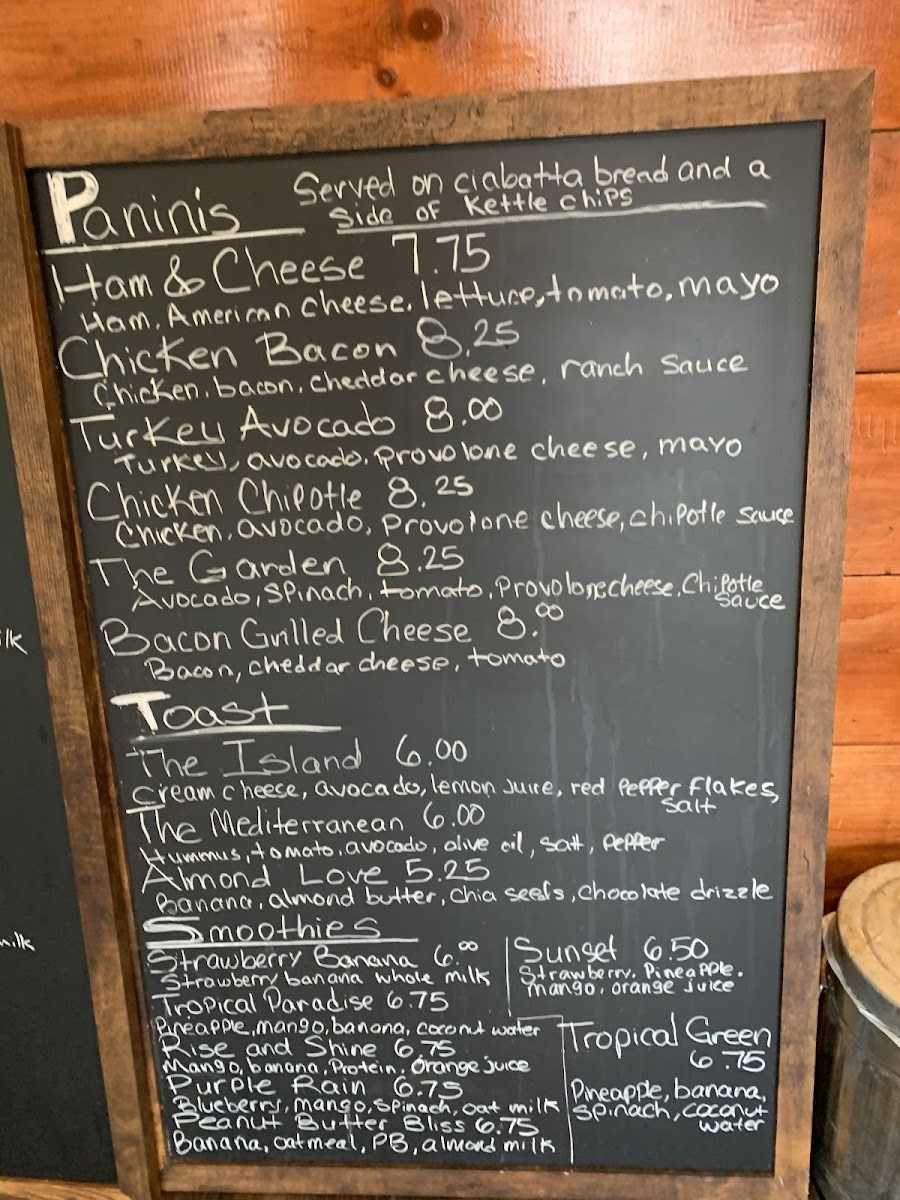 Paninis
Served on ciabatta bread and a
side of Kettle chips
Ham & Cheese 7.75
Ham, American cheese, lettuce, tomato, mayo
Chicken Bacon 8.25
Chicken, bacon, cheddar cheese, ranch sauce
Turkey Avocado 8.00
Turkey, avocado, provolone cheese, mayo
Chicken Chipotle 8.25
Chicken, avocado, provolone cheese, chipotle sauce
The Garden 8.25
Avocado, spinach, tomato, provolone cheese, Chipotle
sauce
Bacon Grilled Cheese 8.00
Bacon, cheddar cheese, tomato
Toast
The Island 6.00
Cream cheese, avocado, lemon juice, red pepper flakes,
salt
The Mediterranean 6.00
Hummus, tomato, avocado, olive oil, salt, pepper
Almond Love 5.25
Banana, almond butter, chia seeds, chocolate drizzle
Smoothies
Strawberry Banana 6.00
Strawberry banana whole milk
Tropical Paradise 6.75
Pineapple, mango, banana, coconut water
Rise and Shine 6.75
Mango, banana, Protein, Orange juice
Purple Rain 6.75
Blueberry, mango, spinach, oat milk
Peanut Butter Bliss 6.75
Banana, oatmeal, PB, almond milk
Sunset 6.50
Strawberry, Pineapple,
mango, orange juice
Tropical Green
6.75
Pineapple, banana,
spinach, coconut
water